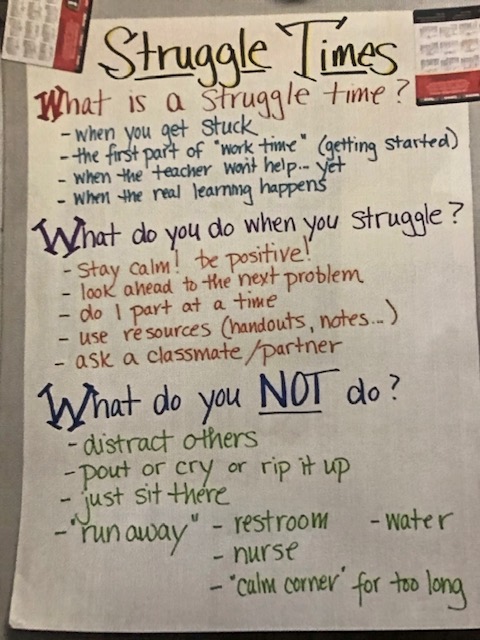 Struggle Times
What is a struggle time?
- when you get stuck
- the first part of "work time" (getting started)
- when the teacher won't help... yet
- when the real learning happens
What do you do when you struggle?
- stay calm! be positive!
- look ahead to the next problem
- do 1 part at a time
- use resources (handouts, notes...)
- ask a classmate/partner
What do you NOT do?
- distract others
- pout or cry or rip it up
- just sit there
- "run away" - restroom - water
- nurse
- "calm corner" for too long